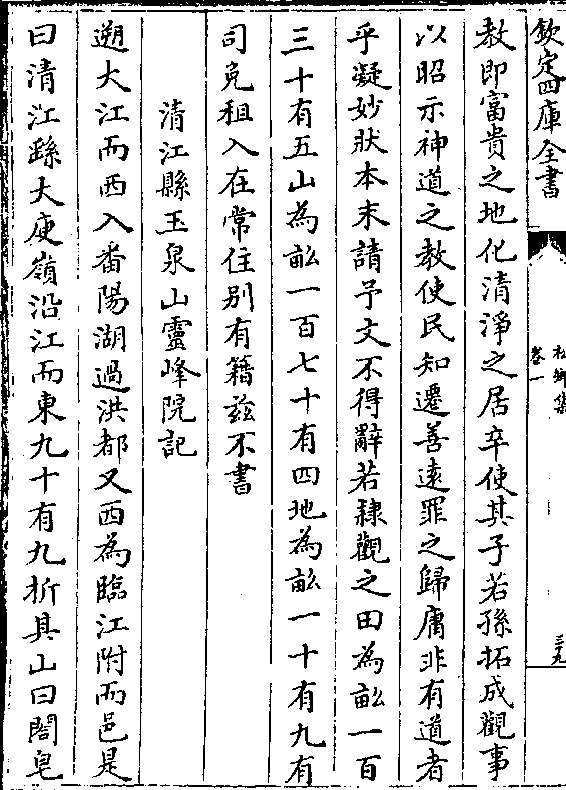 欽定四庫全書
松鄉集
卷一
三九
教即富貴之地化清淨之居卒使其子若孫拓成觀事
以昭示神道之教使民知遷善遠罪之歸庸非有道者
乎凝妙狀本末請予文不得辭若隷觀之田為畝一百
三十有五山為畝一百七十有四地為畝一十有九有
司免租入在常住别有籍兹不書
清江縣玉泉山靈峰院記
遡大江而西入番陽湖過洪都又西為臨江附而邑是
曰清江繇大庾嶺沿江而東九十有九折其山曰閤皂